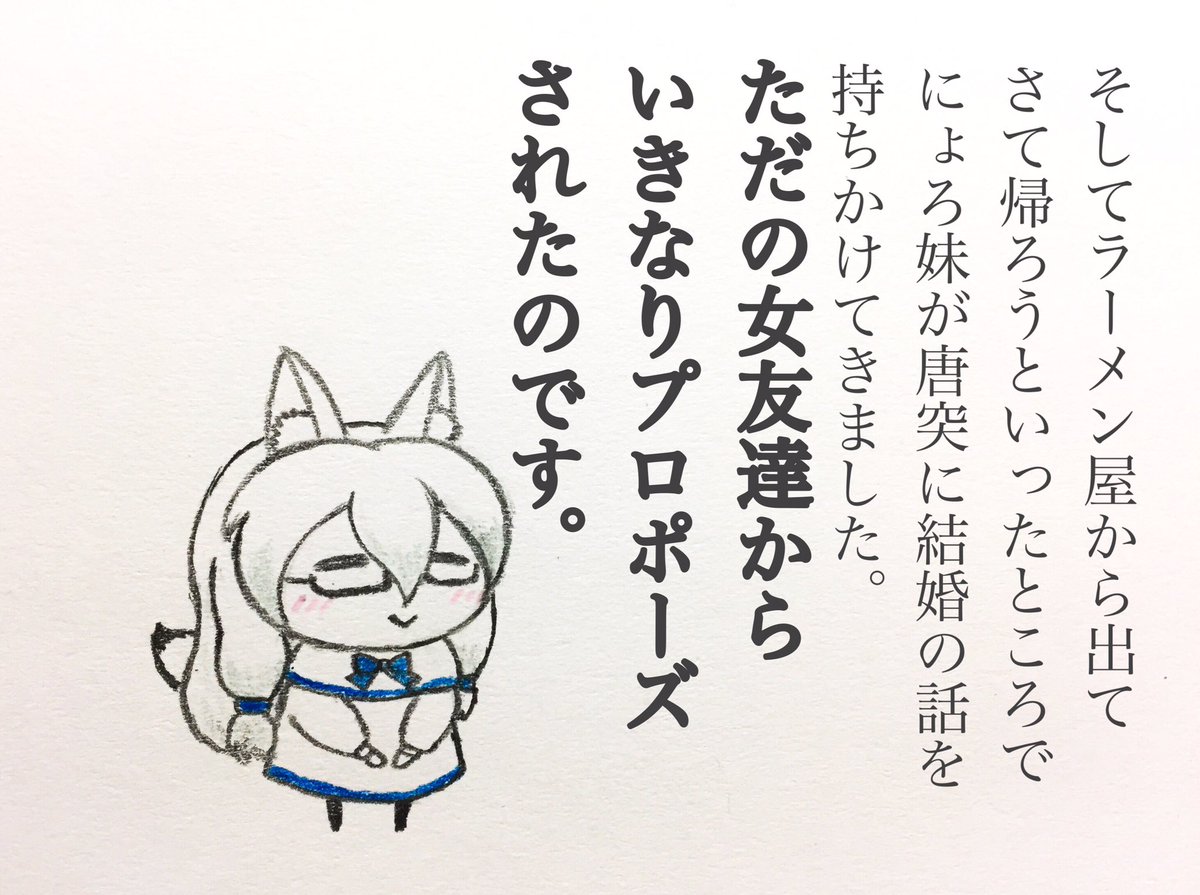 そしてラーメン屋から出て
さて帰ろうといったところで
にょろ妹が唐突に結婚の話を
持ちかけてきました。
ただの女友達から
いきなりプロポーズ
されたのです。